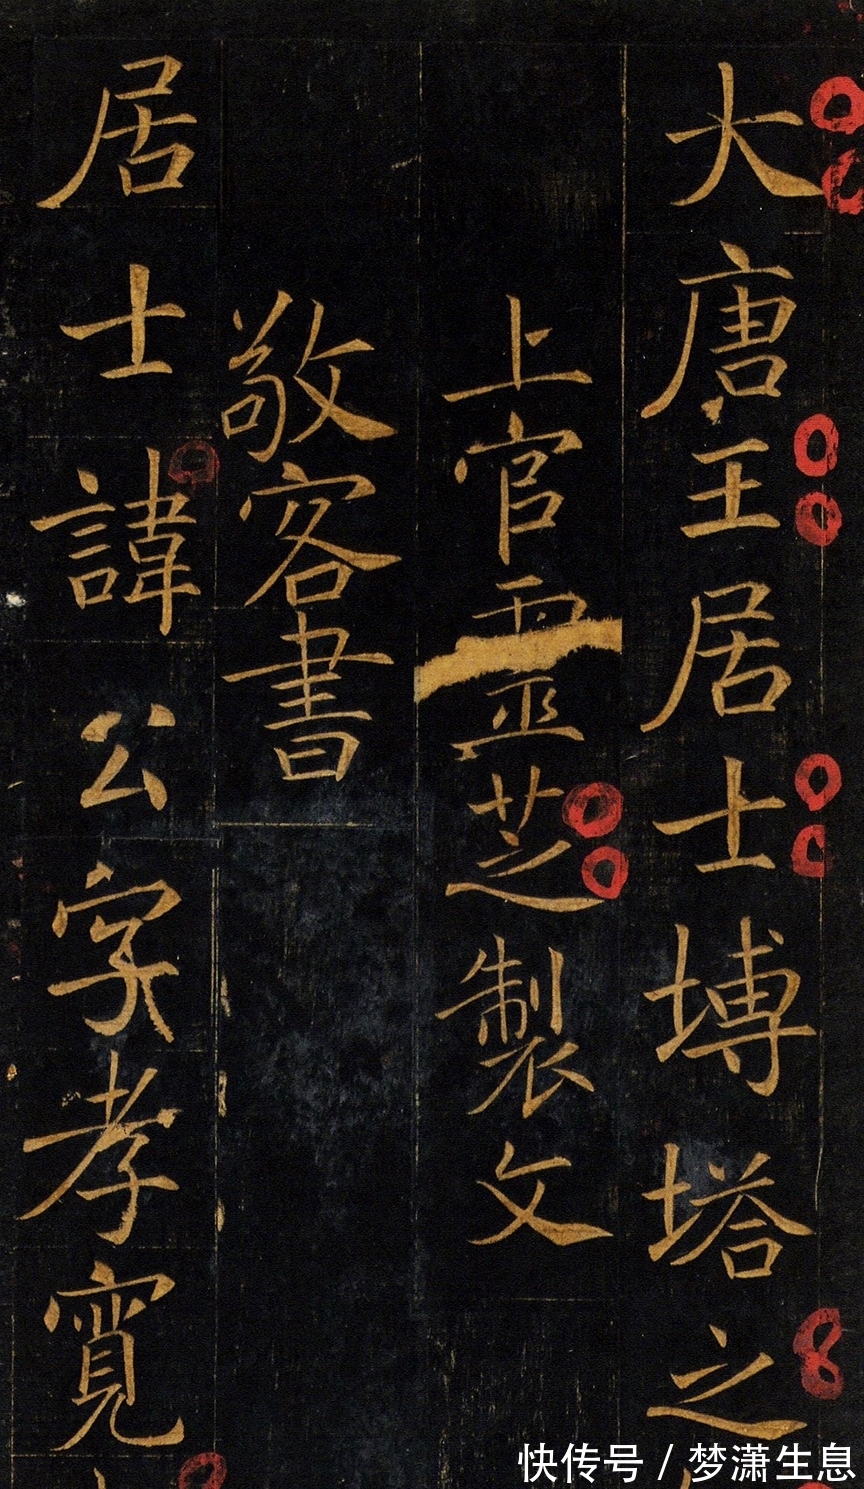 大唐王居士塼塔之
上官靈芝製文
敬客書
居士諱公字孝寬
快传号/梦潇生息